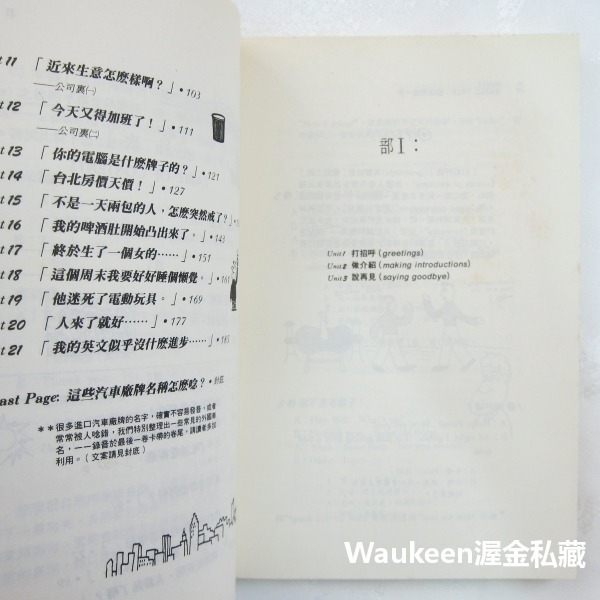 11 「近來生意怎麼樣啊？」• 103
——公司裏㈠
12 「今天又得加班了！」• 111
——公司裏㈡
t 13 「你的電腦是什麼牌子的？」• 121
t 14 「台北房價天價！」• 127
t 15 「不是一天兩包的人，怎麼突然戒了？」
t 16 「我的啤酒肚開始凸出來了。」• 143
t 17 「終於生了一個女的……」• 151
t 18 「這個周末我要好好睡個懶覺。」
t 19 「他迷死了電動玩具。」• 169
t 20 「人來了就好……」• 177
t 21 「我的英文似乎沒什麼進步……」• 185
ast Page: 這些汽車廠牌名稱怎麼唸？• 封底
＊＊很多進口汽車廠牌的名字，確實不容易發音，或者
常常被人唸錯，我們特別整理出一些常見的外國車
名，一一錄音於最後一卷卡帶的卷尾，請讀者多加
利用。（文案請見封底）
部I：
Unit 1 打招呼 (greetings)
Unit 2 做介紹 (making introductions)
Unit 3 說再見 (saying goodbye)
Waukeen渥金私藏